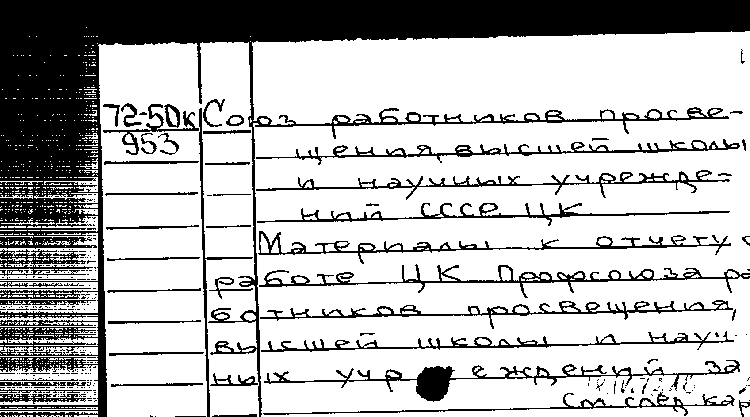 72-50к Союз работников просве-
953 щения, высшей школы
и научных учрежде-
ний СССР. ЦК
Материалы к отчету о
работе ЦК Профсоюза ра
ботников просвещения,
высшей школы и науч
ных учреждений за
См след кар